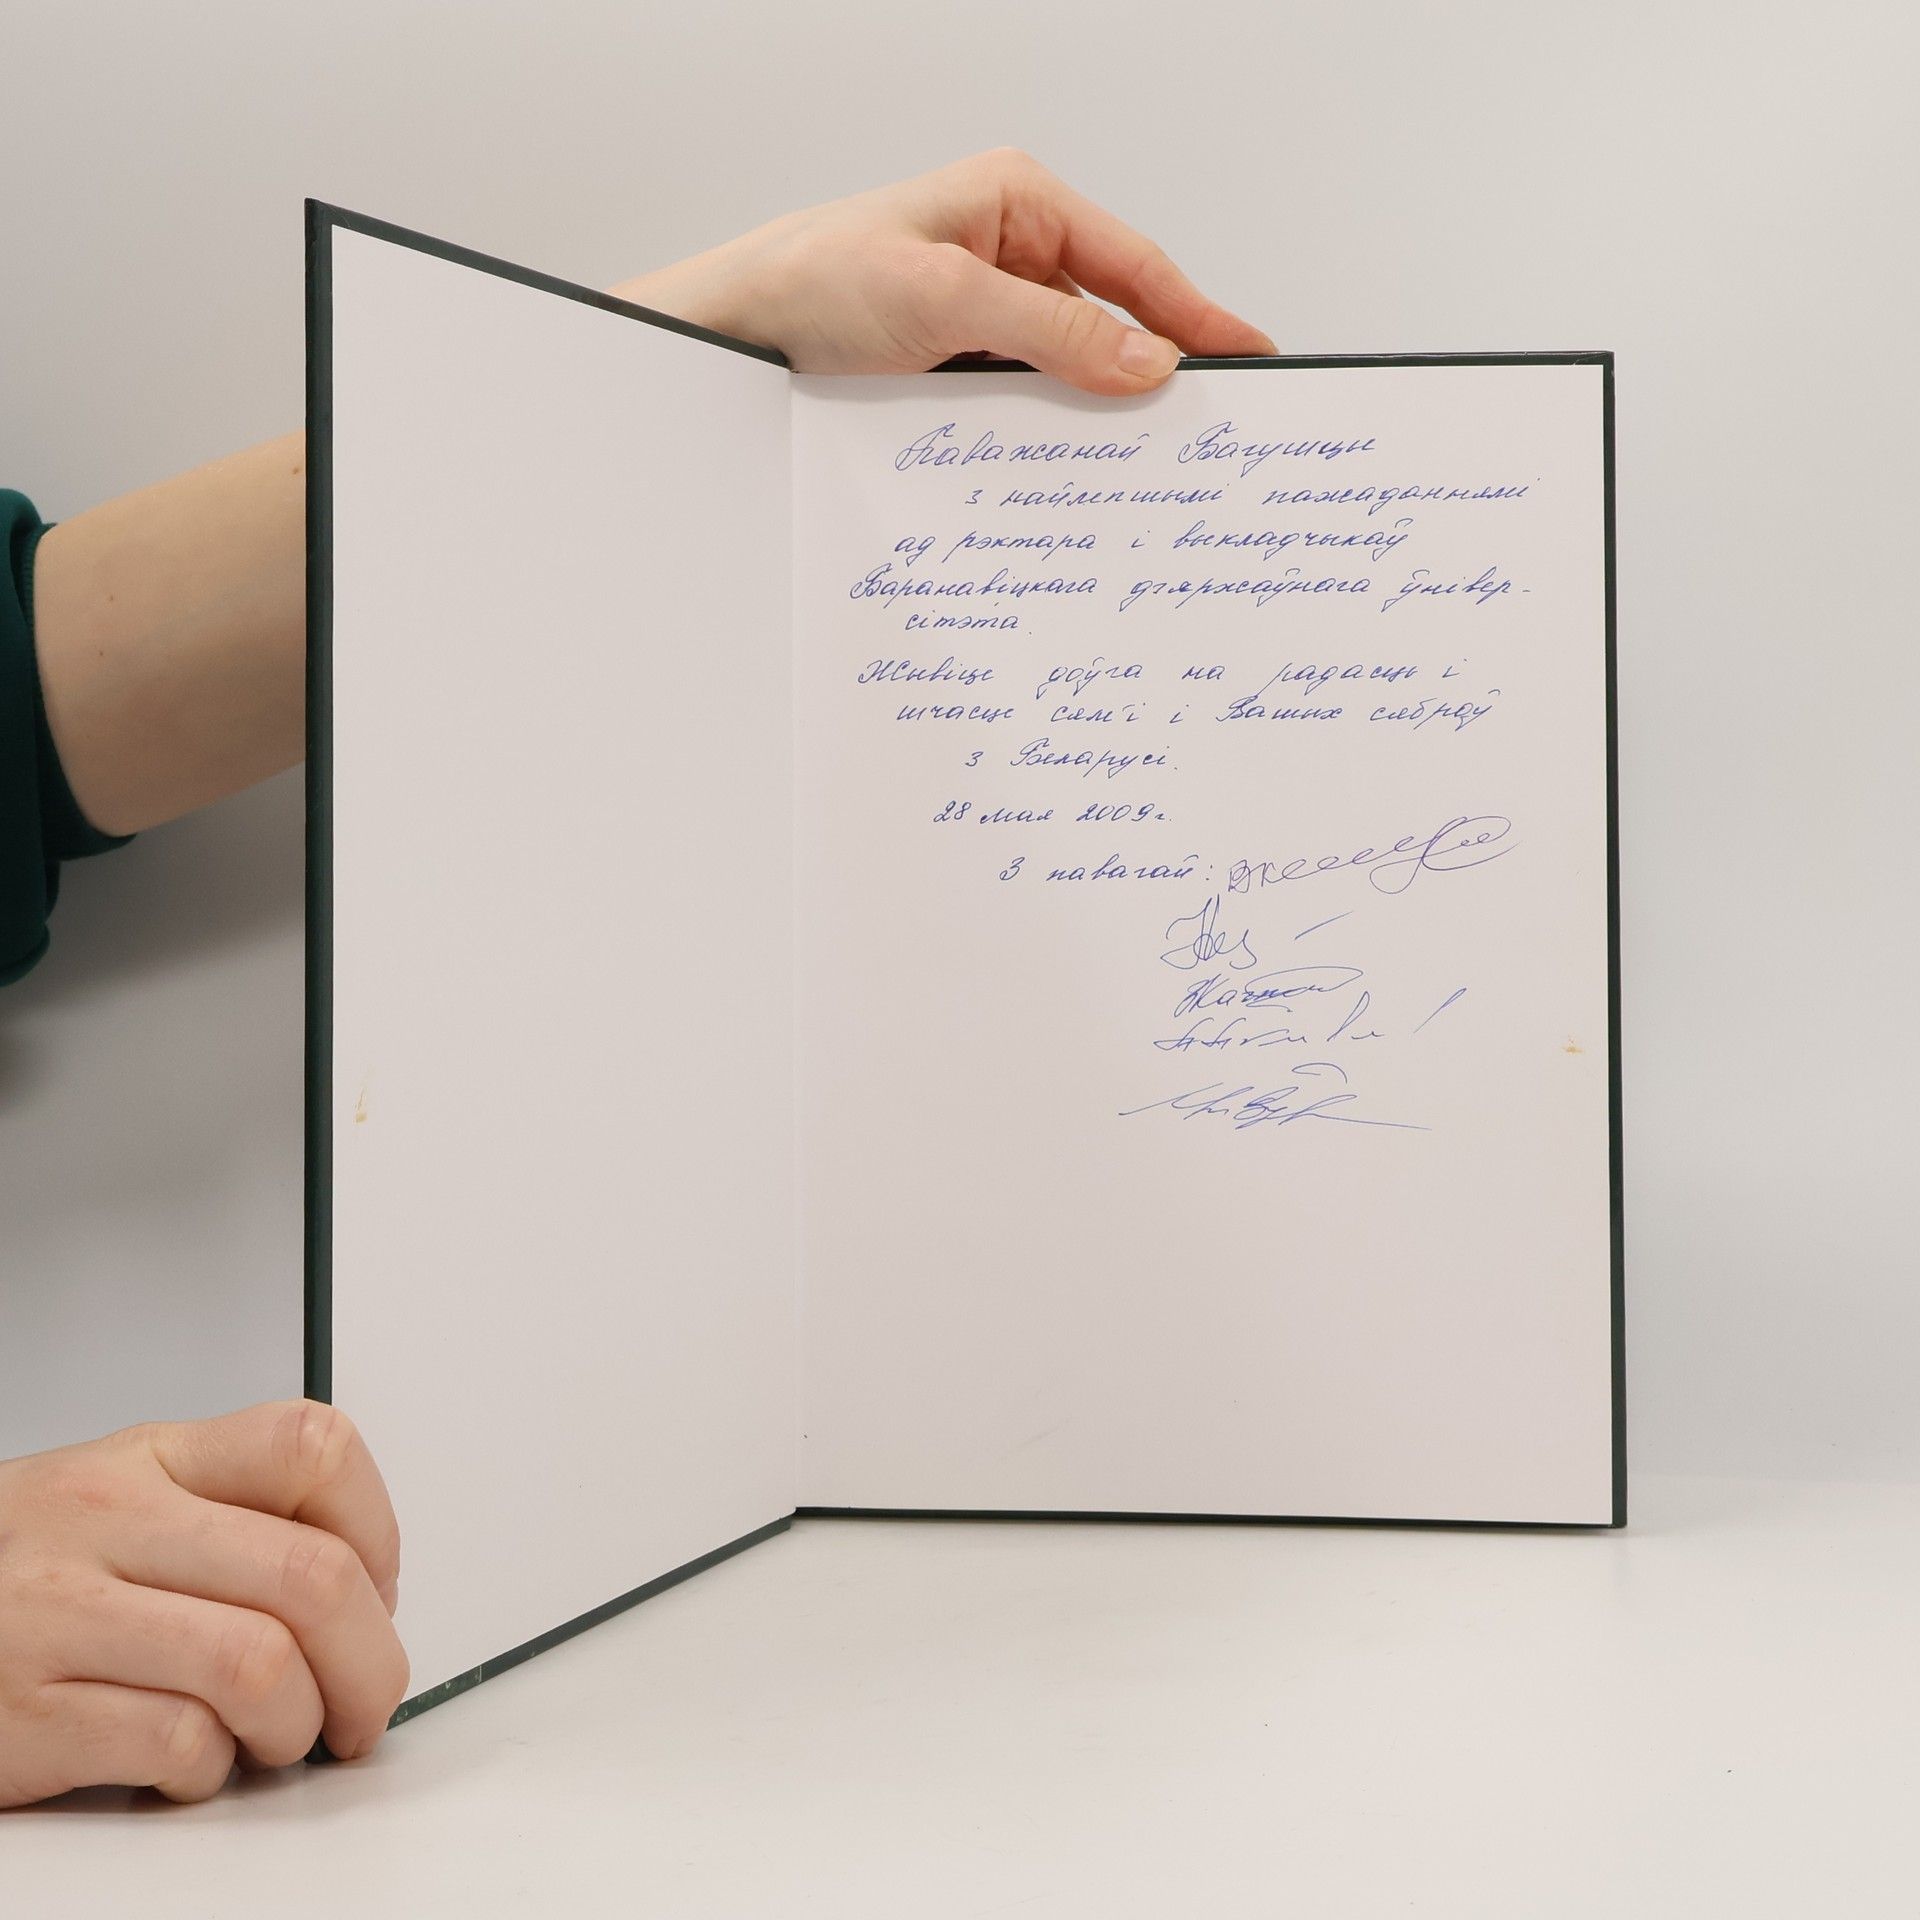 Паважанай Багушцы
з найлепшымі пажаданнямі
ад рэктара і выкладчыкаў
Баранавіцкага дзяржаўнага ўнівер-
сітэта.
Жывіце доўга на радасць і
шчасце сям'і і Вашых сяброў
з Беларусі.
28 мая 2009 г.
З павагай: